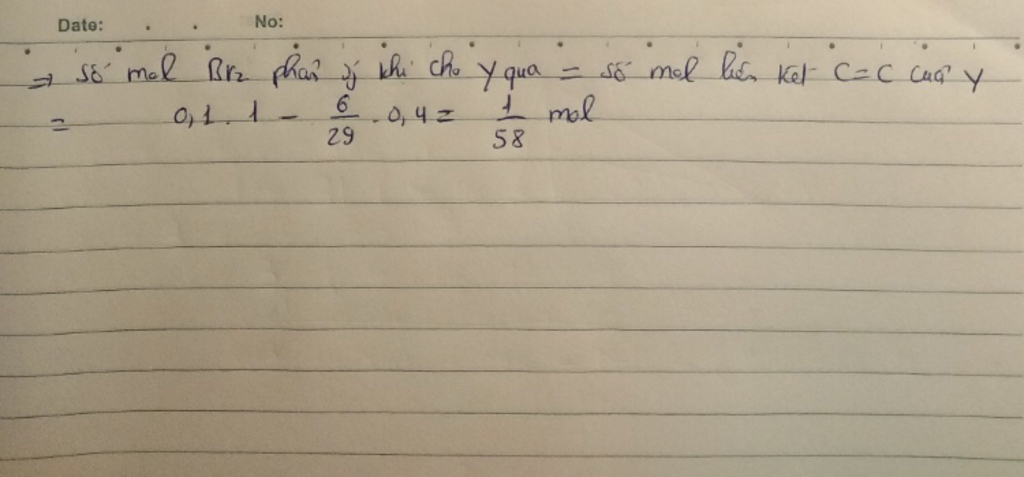 Date: . . No:
⇒ số mol Br2 phản ứ khi cho Y qua = số mol liên kết C=C của Y
= 0,1 . 1 - 6/29 . 0,4 = 1/58 mol